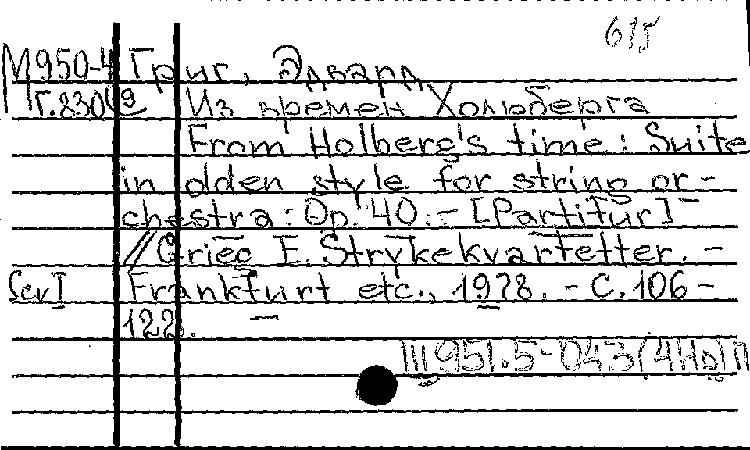 615
М950-4 Григ, Эдвард
Г.830(9 Из времен Хольберга
From Holberg's time: Suite
in olden style for string or-
chestra: Op. 40. - [Partitur] -
// Grieg E. Strykekvartetter. -
Frankfurt etc., 1978. - С. 106 -
122.
Ш951.5-043(4Но)П